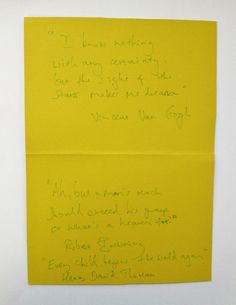 "I know nothing
with any certainty.
but the sight of the
stars makes me dream"
Vincent Van Gogh
"Ah, but a man's reach
should exceed his grasp
or what's a heaven for"
Robert Browning
"Every child begins the world again"
Henry David Thoreau